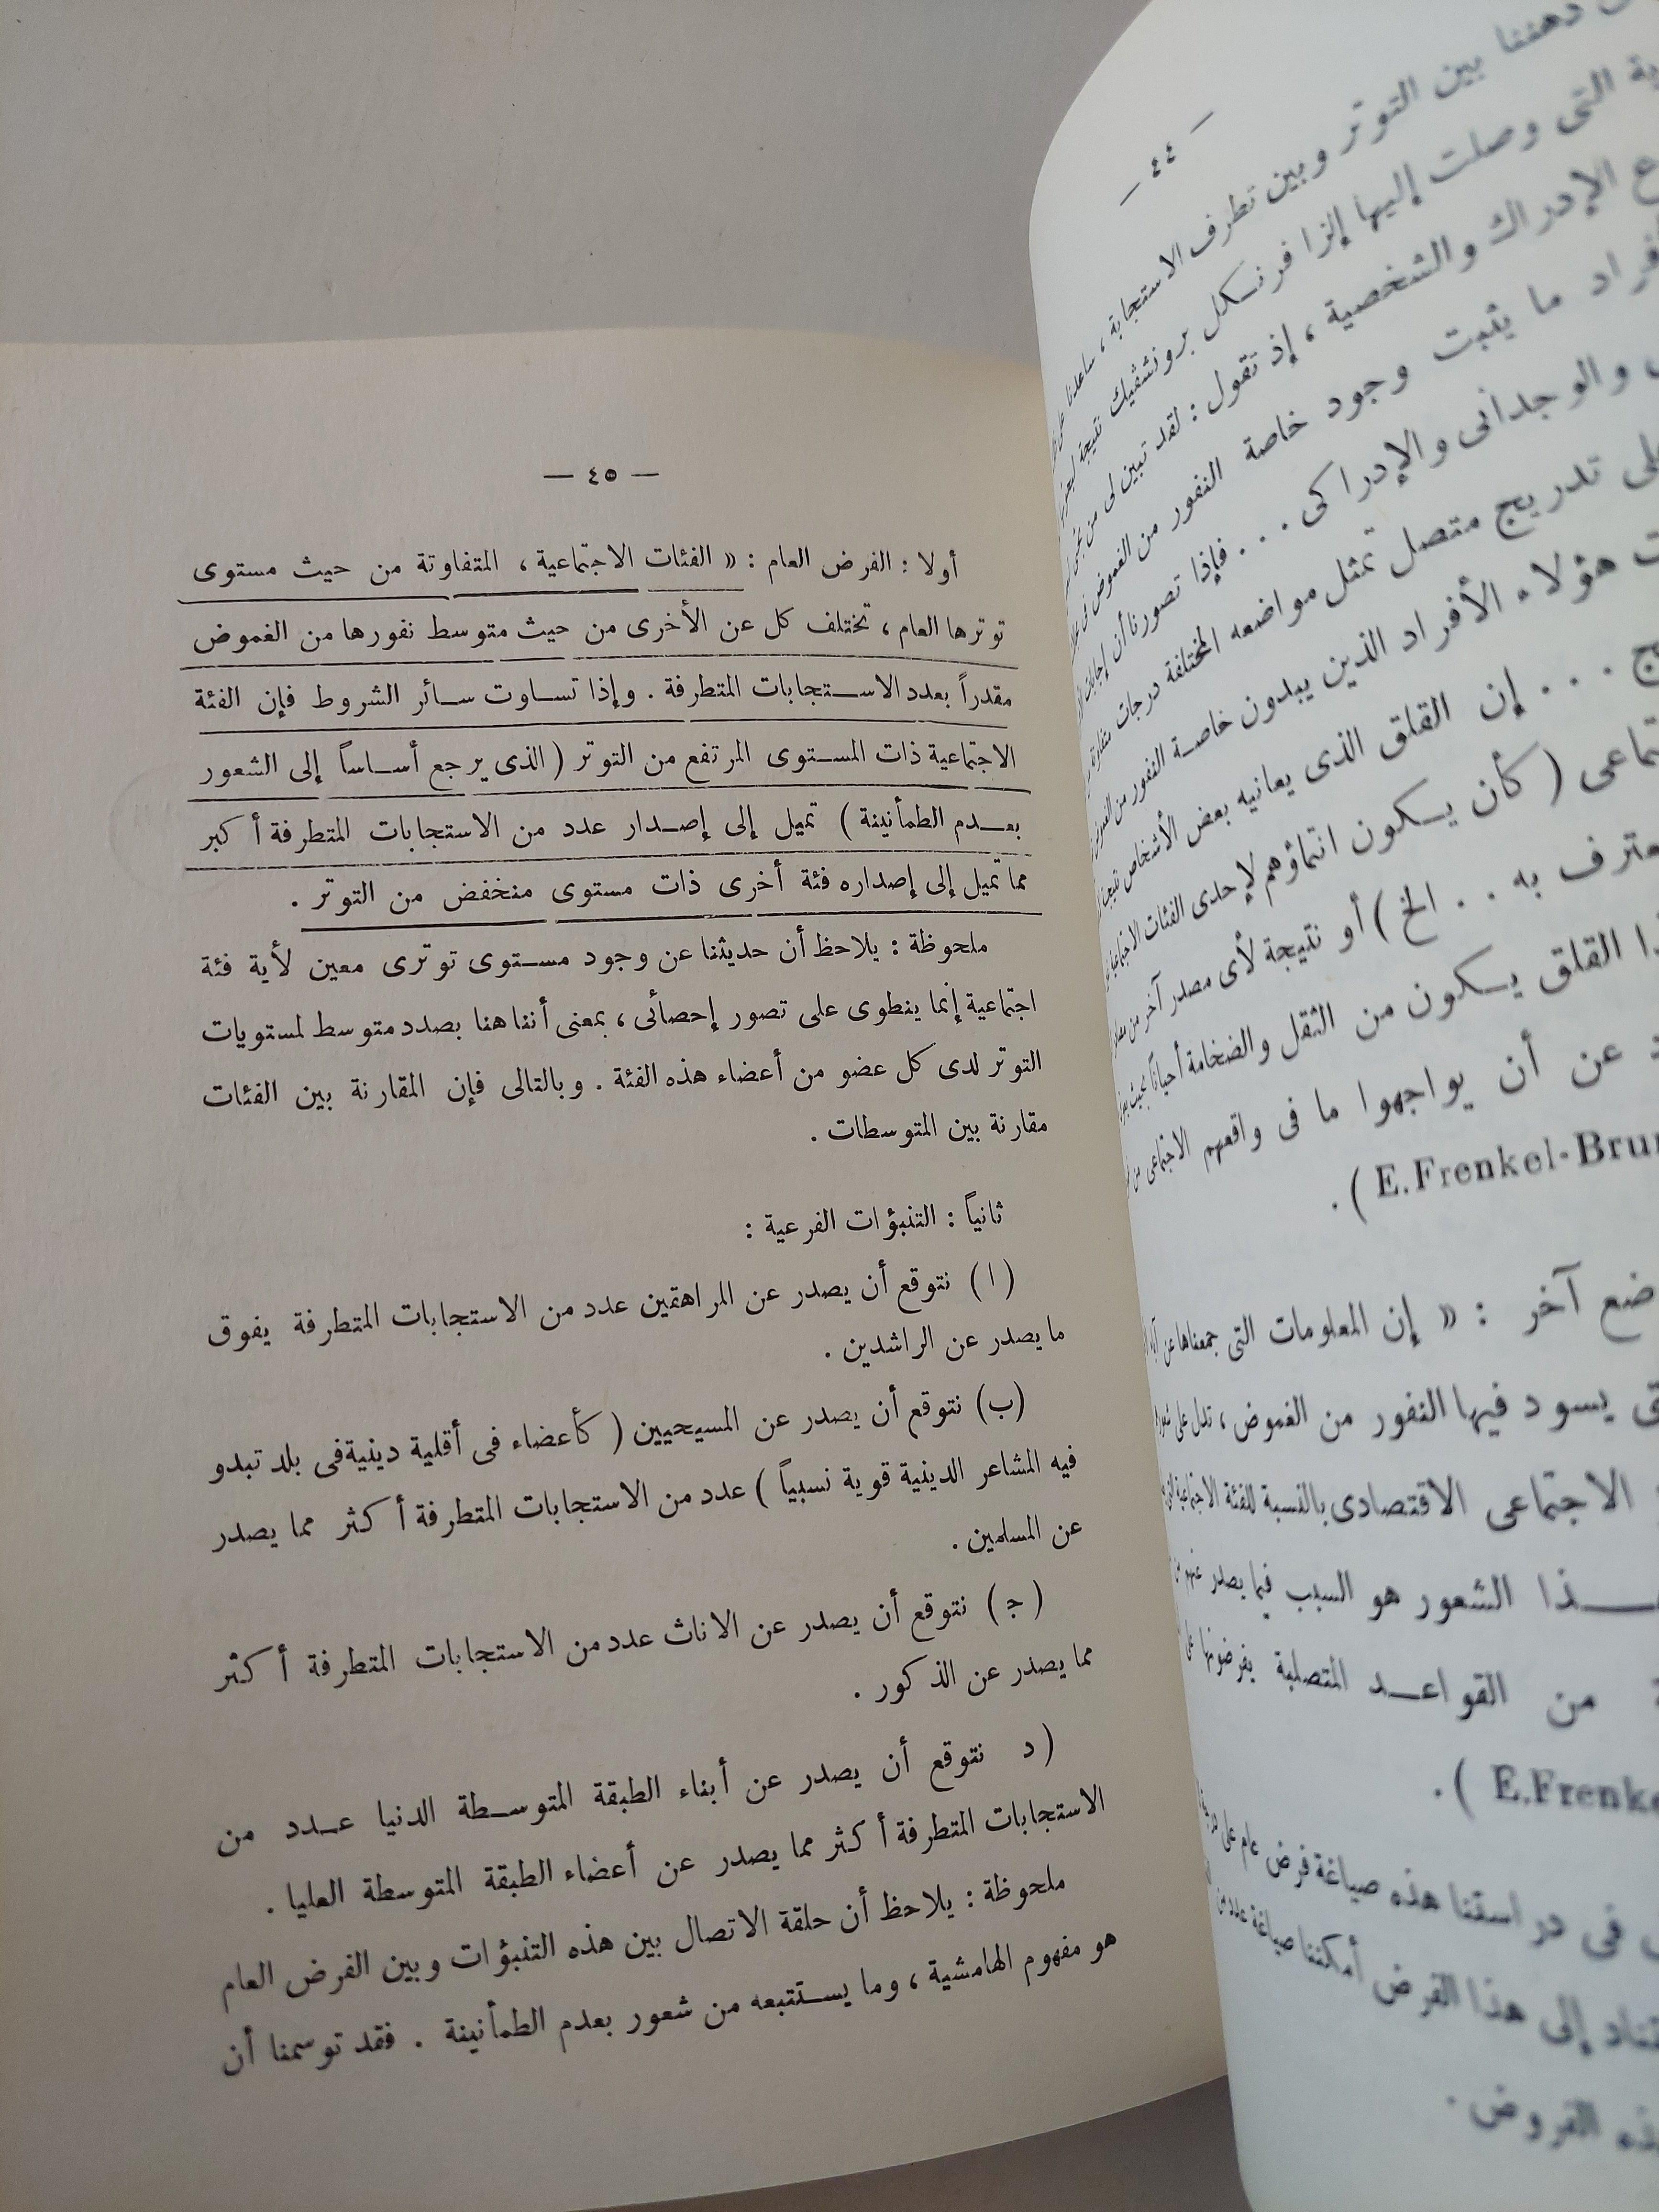 — ٤٤ —
ذهننا بين التوتر وبين تطرف الاستجابة ، ساعدنا على
التى وصلت إليها إلزا فرنكل برونشفيك نتيجة
الإدراك والشخصية ، إذ تقول : لقد تبين لى من
ما يثبت وجود خاصة النفور من الغموض فى
والوجدانى والإدراكى . . . فإذا تصورنا أن إجابات
تدريج متصل تمثل مواضعه المختلفة درجات متفاوتة
هؤلاء الأفراد الذين يبدون خاصة النفور من الغموض
. . . إن القلق الذى يعانيه بعض الأشخاص نتيجة
( كأن يكون انتماؤهم لإحدى الفئات الاجتماعية
به . . الخ ) أو نتيجة لأى مصدر آخر من
القلق يكون من الثقل والضخامة أحياناً بحيث
عن أن يواجهوا ما فى واقعهم الاجتماعى من
E.Frenkel-Brun ) .
آخر : « إن المعلومات التى جمعناها عن
يسود فيها النفور من الغموض ، تدل على
الاجتماعى الاقتصادى بالنسبة للفئة الاجتماعية
الشعور هو السبب فيما يصدر عنهم من
من القواعد المتصلبة يفرضونها على
E.Frenke ) .
فى دراستنا هذه صياغة فرض عام على
إلى هذا الفرض أمكننا صياغة عدد من
الفروض .
— ٤٥ —
أولا : الفرض العام : « الفئات الاجتماعية ، المتفاوتة من حيث مستوى
توترها العام ، تختلف كل عن الأخرى من حيث متوسط نفورها من الغموض
مقدراً بعدد الاستجابات المتطرفة . وإذا تساوت سائر الشروط فإن الفئة
الاجتماعية ذات المستوى المرتفع من التوتر ( الذى يرجع أساساً إلى الشعور
بعدم الطمأنينة ) تميل إلى إصدار عدد من الاستجابات المتطرفة أكبر
مما تميل إلى إصداره فئة أخرى ذات مستوى منخفض من التوتر .
ملحوظة : يلاحظ أن حديثنا عن وجود مستوى توترى معين لأية فئة
اجتماعية إنما ينطوى على تصور إحصائى ، بمعنى أننا هنا بصدد متوسط لمستويات
التوتر لدى كل عضو من أعضاء هذه الفئة . وبالتالى فإن المقارنة بين الفئات
مقارنة بين المتوسطات .
ثانياً : التنبؤات الفرعية :
( ا ) نتوقع أن يصدر عن المراهقين عدد من الاستجابات المتطرفة يفوق
ما يصدر عن الراشدين .
(ب) نتوقع أن يصدر عن المسيحيين ( كأعضاء فى أقلية دينية فى بلد تبدو
فيه المشاعر الدينية قوية نسبياً ) عدد من الاستجابات المتطرفة أكثر مما يصدر
عن المسلمين .
( ج ) نتوقع أن يصدر عن الاناث عدد من الاستجابات المتطرفة أكثر
مما يصدر عن الذكور .
( د نتوقع أن يصدر عن أبناء الطبقة المتوسطة الدنيا عدد من
الاستجابات المتطرفة أكثر مما يصدر عن أعضاء الطبقة المتوسطة العليا .
ملحوظة : يلاحظ أن حلقة الاتصال بين هذه التنبؤات وبين الفرض العام
هو مفهوم الهامشية ، وما يستتبعه من شعور بعدم الطمأنينة . فقد توسمنا أن